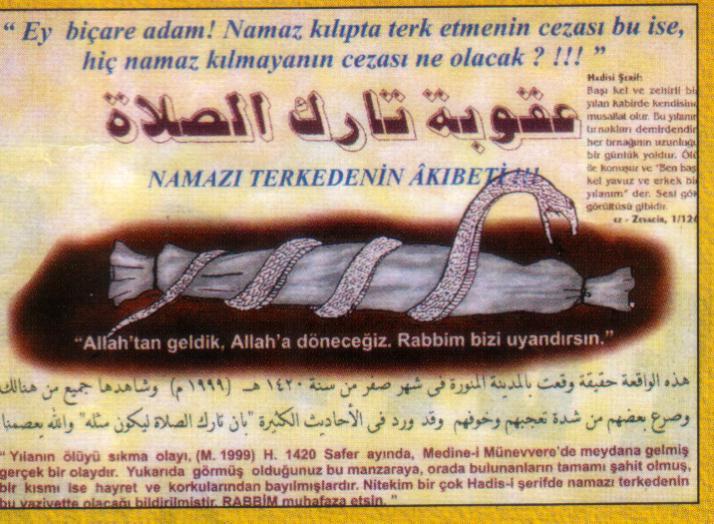 “ Ey biçare adam! Namaz kılıpta terk etmenin cezası bu ise,
hiç namaz kılmayanın cezası ne olacak ? !!! ”
Hadisi Şerif:
Başı kel ve zehirli bir
yılan kabirde kendisine
musallat olur. Bu yılanın
tırnakları demirdendir
her tırnağının uzunluğu
bir günlük yoldur. Ölü
ile konuşur ve "Ben başı
kel yavuz ve erkek bir
yılanım" der. Sesi gök
gürültüsü gibidir.
ez - Zevacir, 1/126
عقوبة تارك الصلاة
NAMAZI TERKEDENİN ÂKIBETİ !!!
“Allah’tan geldik, Allah’a döneceğiz. Rabbim bizi uyandırsın.”
هذه الواقعة حقيقة وقعت بالمدينة المنورة فى شهر صفر من سنة ١٤٢٠ هـ (١٩٩٩ م) وشاهدها جميع من هنالك
وصرع بعضهم من شدة تعجبهم وخوفهم وقد ورد فى الأحاديث الكثيرة "بان تارك الصلاة ليكون مثله" والله يعصمنا
“ Yılanın ölüyü sıkma olayı, (M. 1999) H. 1420 Safer ayında, Medine-i Münevvere’de meydana gelmiş
gerçek bir olaydır. Yukarıda görmüş olduğunuz bu manzaraya, orada bulunanların tamamı şahit olmuş,
bir kısmı ise hayret ve korkularından bayılmışlardır. Nitekim bir çok Hadis-i şerifde namazı terkedenin
bu vaziyette olacağı bildirilmiştir. RABBİM muhafaza etsin. ”